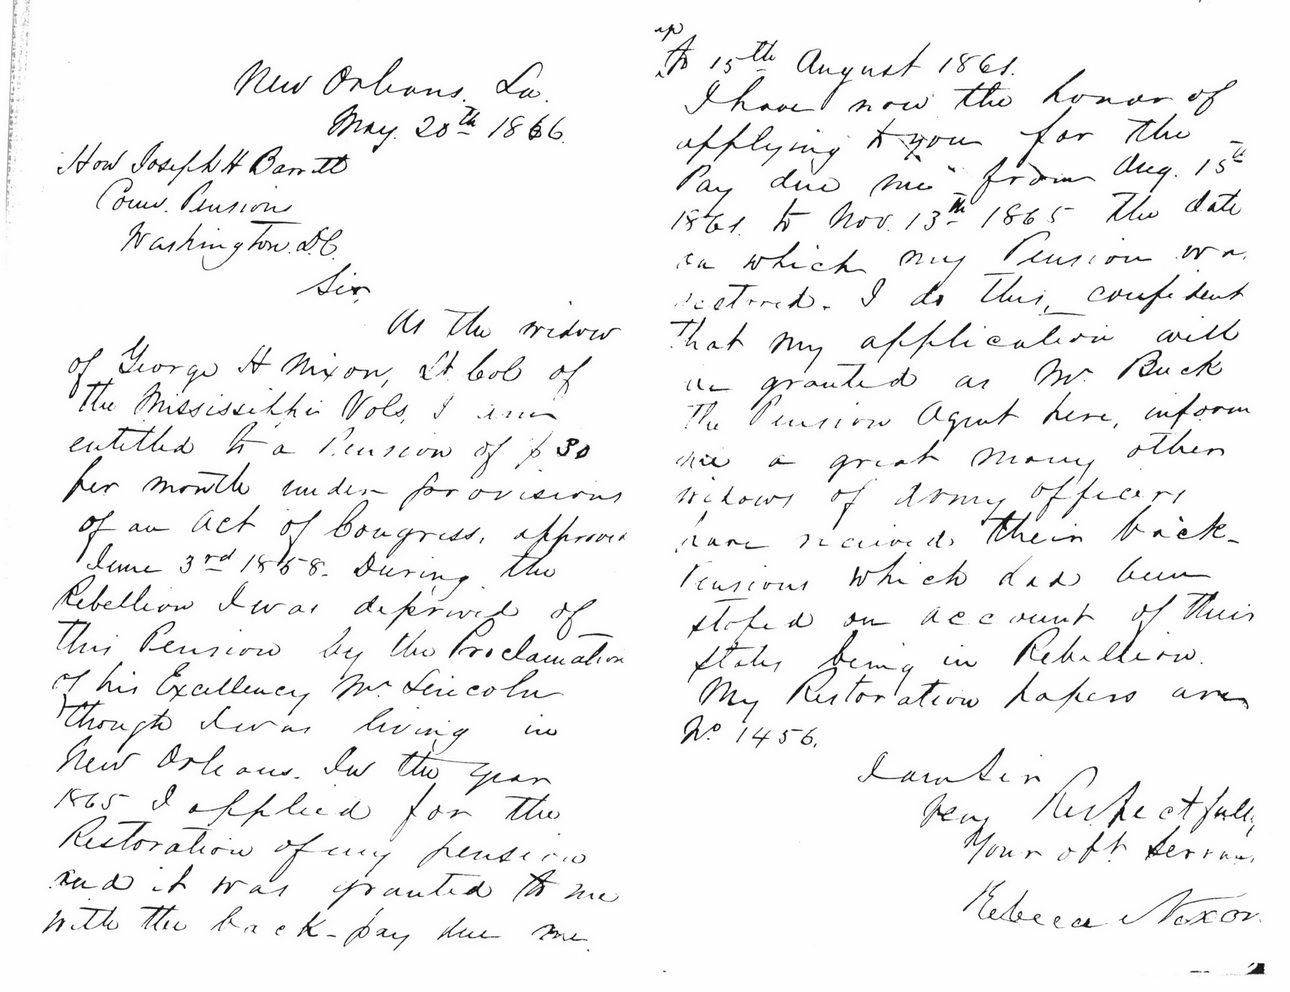 New Orleans. La.
May. 20th 1866.
Hon Joseph H Barrett
Com. Pension
Washington. D.C.
Sir,
As the widow
of George H Nixon, Lt Col of
the Mississippi Vols, I am
entitled to a Pension of $30
per month under provisions
of an Act of Congress, approved
June 3rd 1858. During the
Rebellion I was deprived of
this Pension by the Proclamation
of his Excellency Mr Lincoln
though I was living in
New Orleans. In the year
1865 I applied for the
Restoration of my pension
and it was granted to me
with the back-pay due me.
up
to 15th August 1861.
I have now the honor of
applying to you for the
Pay due me from Aug. 15th
1861. to Nov. 13th 1865 the date
on which my Pension was
restored. I do this, confident
that my application will
be granted as Mr. Buck
the Pension Agent here, inform
me a great many other
widows of Army officers
have recieved their back-
Pensions which had been
stoped on account of their
states being in Rebellion.
My Restoration papers are
No 1456.
I am Sir
Very Respectfully
Your obt. Servant
Rebecca Nixon